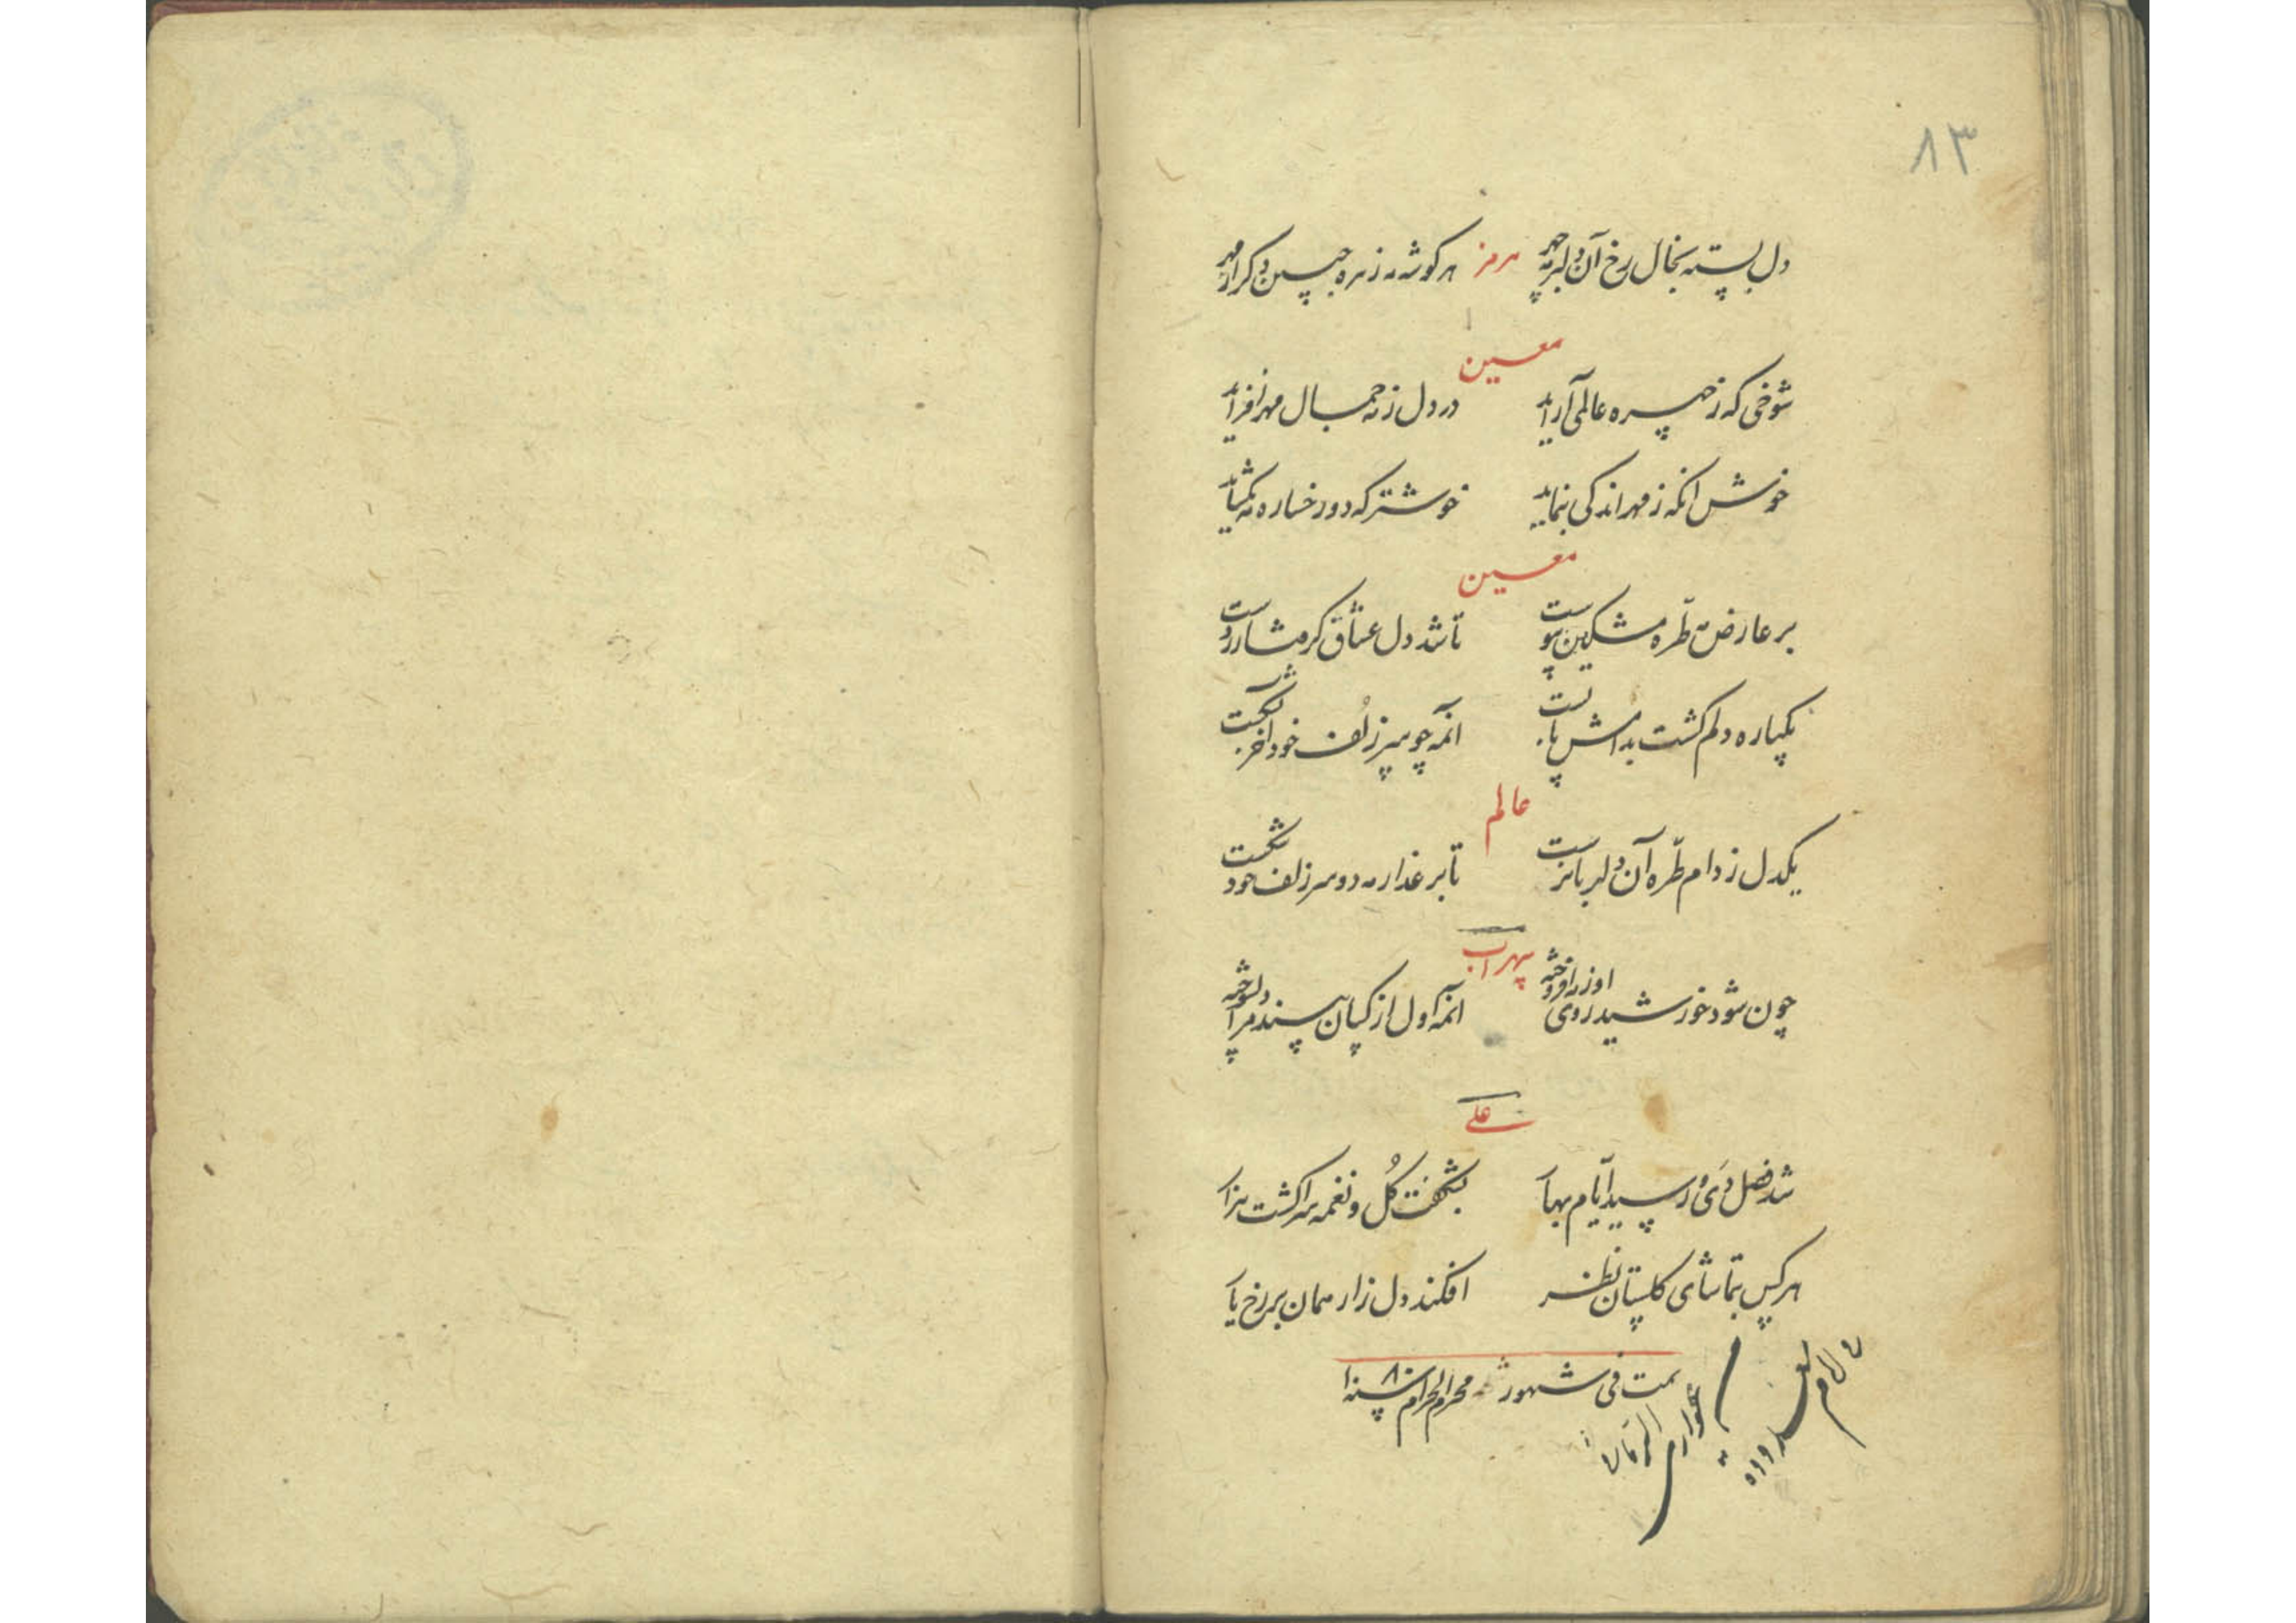 ٨٣
دل بسته بخال رخ آن دلبر مه چهر هرمز هر گوشه مه زهره جبین دگر از مهر
معین
شوخی که ز چهره عالمی آراید در دل ز مه جمال مهر افزاید
خوش انکه ز مهر اندکی بنماید خوشتر که دو رخساره مه بگشاید
معین
بر عارض مه طره مشکین پیوست تا شد دل عشاق گرفتار درست
یکباره دلم گشت بدامش پابست انمه چو سر زلف خود آخر بشکست
عالم
یکدل ز دام طره آن دلربا نرست تا بر عذار مه دو سر زلف خود شکست
سهراب
چون شود خورشید روی او ز می افروخته انمه اول از کسان سپند مرا دلسوخته
علی
شد فصل دی و رسید ایام بهار بشکفت گل و نغمه سرا گشت هزار
هر کس بتماشای گلستان نظر افکند دل زار همان بر رخ یار
تمت فی شهور محرم الحرام سنه ١٠٨٠